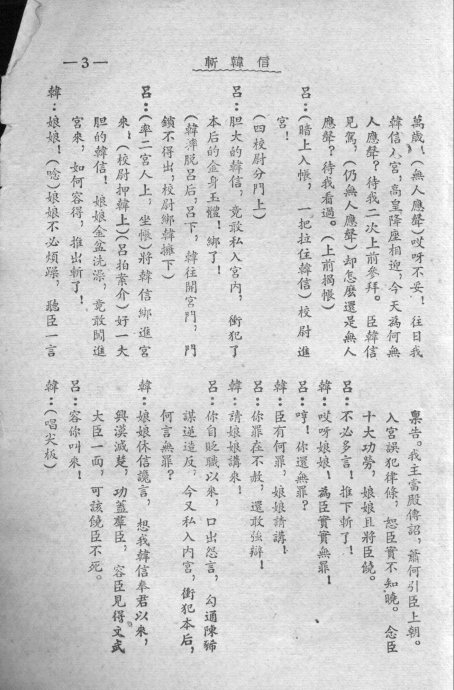 斬韓信
—3—
萬歲！（無人應聲）哎呀不妥！往日我
韓信入宮，高皇降座相迎，今天為何無
人應聲？待我二次上前參拜。臣韓信
見駕，（仍無人應聲）却怎麼還是無人
應聲？待我看過。（上前揭帳）
呂：（暗上入帳，一把拉住韓信）校尉進
宮！
（四校尉分門上）
呂：胆大的韓信，竟敢私入宮內，衝犯了
本后的金身玉體！綁了！
（韓摔脫呂后，呂下，韓往開宮門，門
鎖不得出，校尉綁韓擁下）
呂：（率二宮人上，坐帳）將韓信綁進宮
來，（校尉押韓上）（呂拍案介）好一大
胆的韓信！娘娘金盆洗澡，竟敢闖進
宮來，如何容得，推出斬了！
韓：娘娘！（唸）娘娘不必煩躁，聽臣一言
稟告。我主當殿傳詔，蕭何引臣上朝。
入宮誤犯律條，恕臣實不知曉。念臣
十大功勞，娘娘且將臣饒。
呂：不必多言！推下斬了！
韓：哎呀娘娘！為臣實實無罪！
呂：哼！你還無罪？
韓：臣有何罪，娘娘請講！
呂：你罪在不赦，還敢強辯！
韓：請娘娘講來！
呂：你自貶職以來，口出怨言，勾通陳豨
謀逆造反，今又私入內宮，衝犯本后，
何言無罪？
韓：娘娘休信讒言，想我韓信奉君以來，
興漢滅楚，功蓋羣臣，容臣見得文武
大臣一面，可該饒臣不死。
呂：容你叫來！
韓：（唱尖板）